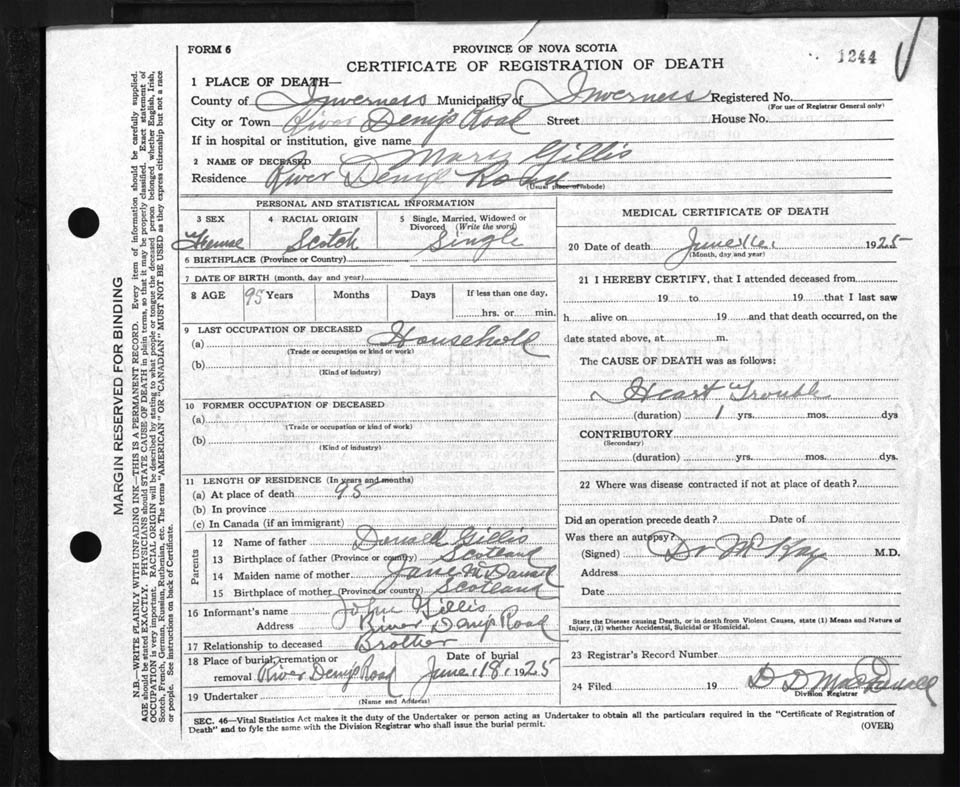 FORM 6
PROVINCE OF NOVA SCOTIA
CERTIFICATE OF REGISTRATION OF DEATH
1244
1 PLACE OF DEATH—
County of Inverness Municipality of Inverness Registered No.
(For use of Registrar General only)
City or Town River Denys Road Street House No.
If in hospital or institution, give name
2 NAME OF DECEASED Mary Gillis
Residence River Denys Road
(Usual place of abode)
PERSONAL AND STATISTICAL INFORMATION
3 SEX 4 RACIAL ORIGIN 5 Single, Married, Widowed or Divorced (Write the word)
Female Scotch Single
6 BIRTHPLACE (Province or Country)
7 DATE OF BIRTH (month, day and year)
8 AGE 95 Years Months Days If less than one day, hrs. or min.
9 LAST OCCUPATION OF DECEASED
(a) Household
(Trade or occupation or kind or work)
(b)
(Kind of industry)
10 FORMER OCCUPATION OF DECEASED
(a)
(Trade or occupation or kind of work)
(b)
(Kind of industry)
11 LENGTH OF RESIDENCE (In years and months)
(a) At place of death 95
(b) In province
(c) In Canada (if an immigrant)
Parents
12 Name of father Donald Gillis
13 Birthplace of father (Province or country) Scotland
14 Maiden name of mother Jane
15 Birthplace of mother (Province or country) Scotland
16 Informant's name John Gillis
Address River Denys Road
17 Relationship to deceased Brother
18 Place of burial, cremation or removal River Denys Road Date of burial June 18, 1925
19 Undertaker
(Name and Address)
MEDICAL CERTIFICATE OF DEATH
20 Date of death June 1925
(Month, day and year)
21 I HEREBY CERTIFY, that I attended deceased from
19 to 19 that I last saw
h alive on 19 and that death occurred, on the
date stated above, at m.
The CAUSE OF DEATH was as follows:
Heart Trouble
(duration) 1 yrs. mos. dys
CONTRIBUTORY
(Secondary)
(duration) yrs. mos. dys.
22 Where was disease contracted if not at place of death?
Did an operation precede death? Date of
Was there an autopsy?
(Signed) Dr McKay M.D.
Address
Date
State the Disease causing Death, or in death from Violent Causes, state (1) Means and Nature of
Injury, (2) whether Accidental, Suicidal or Homicidal.
23 Registrar's Record Number
24 Filed 19 D D
Division Registrar
SEC. 46—Vital Statistics Act makes it the duty of the Undertaker or person acting as Undertaker to obtain all the particulars required in the "Certificate of Registration of
Death" and to fyle the same with the Division Registrar who shall issue the burial permit.
(OVER)
MARGIN RESERVED FOR BINDING
N.B.—WRITE PLAINLY WITH UNFADING INK—THIS IS A PERMANENT RECORD. Every item of information should be carefully supplied.
AGE should be stated EXACTLY. PHYSICIANS should STATE CAUSE OF DEATH in plain terms, so that it may be properly classified. Exact statement of
OCCUPATION is very important. RACIAL ORIGIN will be described by stating to what people or tongue the deceased person belonged whether English, Irish,
Scotch, French, German, Russian, Ruthenian, etc. The terms "AMERICAN" OR "CANADIAN" MUST NOT BE USED as they express citizenship but not a race
or people. See instructions on back of Certificate.